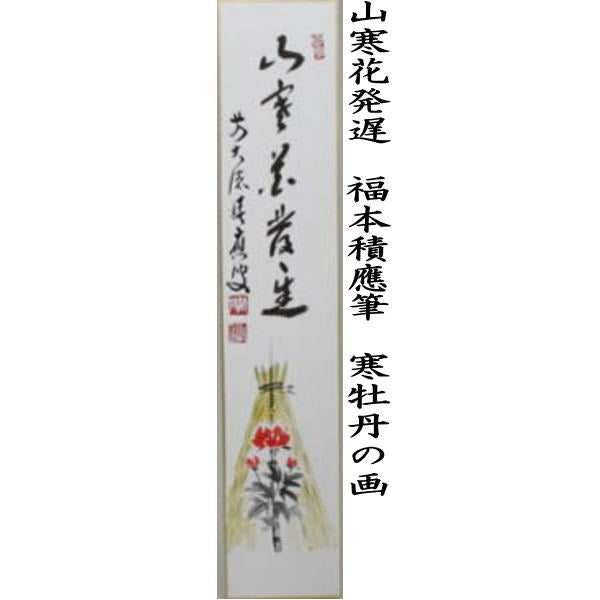 山寒花発遅 福本積應筆 寒牡丹の画
山寒花發遅